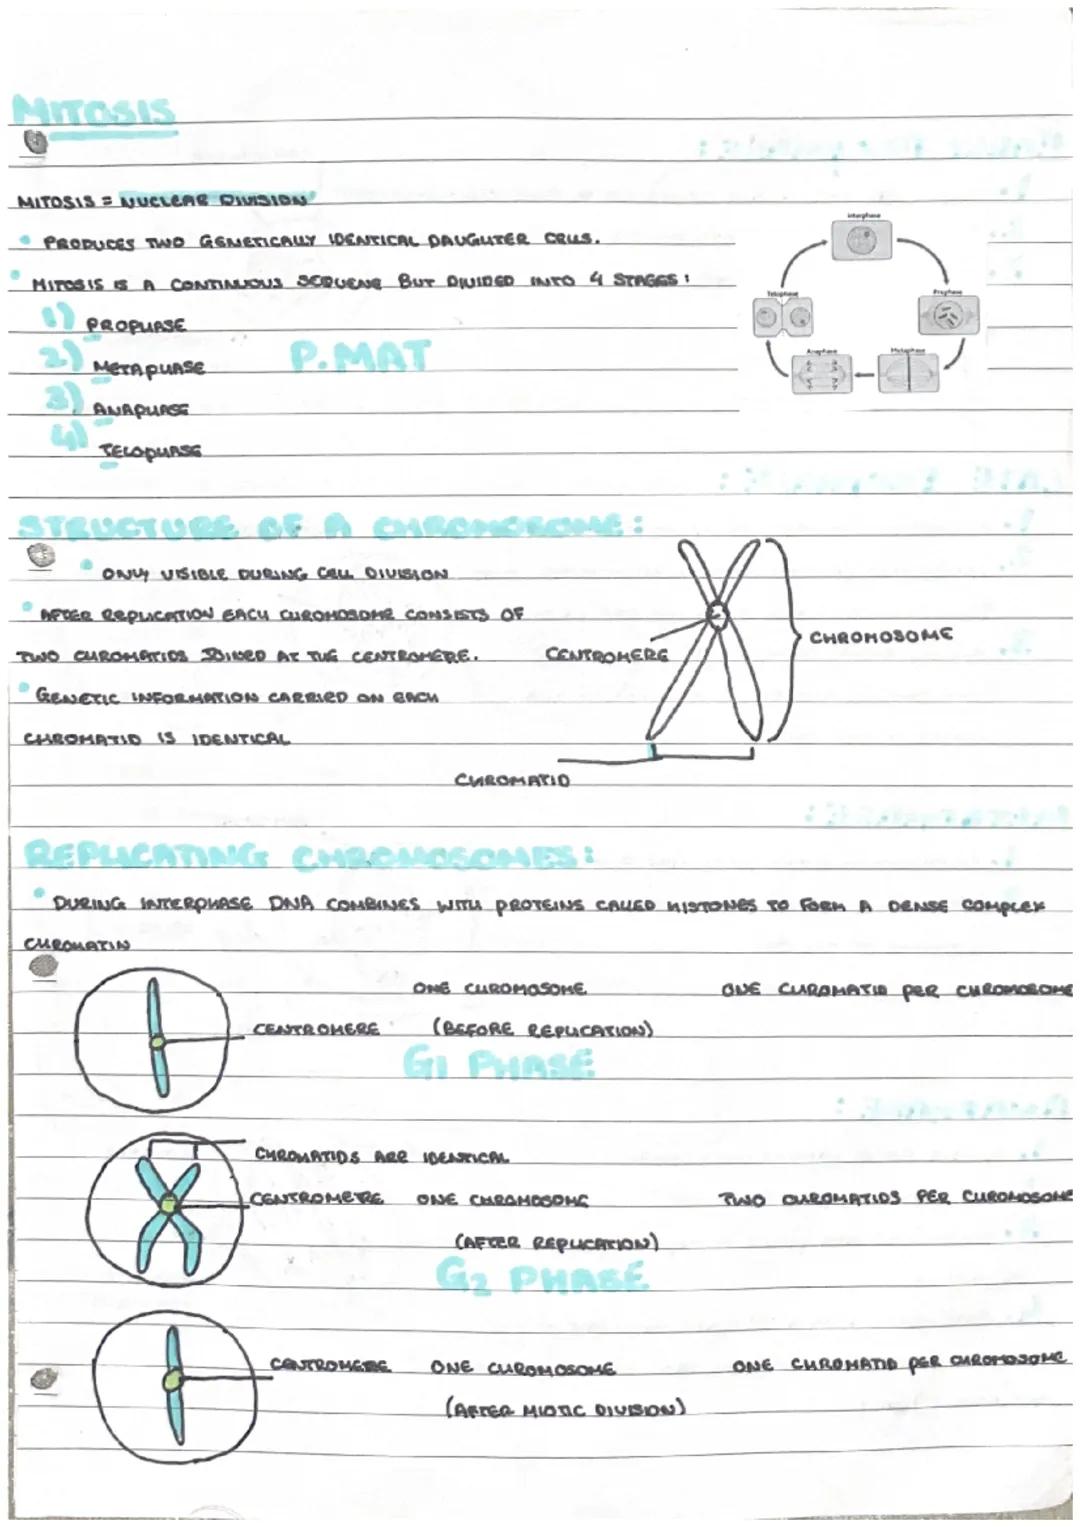 MITOSIS
MITOSIS = NUCLEAR DIVISION
• PRODUCES TWO GENETICALLY IDENTICAL DAUGHTER CELLS.
• MITOSIS IS A CONTINUOUS SEQUENCE BUT DIVIDED INTO 4 STAGES:
1) PROPHASE
2) METAPHASE
P.MAT
3) ANAPHASE
4) TELOPHASE
Interphase
Prophase
Metaphase
Anaphase
Telophase
STRUCTURE OF A CHROMOSOME:
• ONLY VISIBLE DURING CELL DIVISION
• AFTER REPLICATION EACH CHROMOSOME CONSISTS OF
TWO CHROMATIDS JOINED AT THE CENTROMERE.
• GENETIC INFORMATION CARRIED ON EACH
CHROMATID IS IDENTICAL
CENTROMERE
CHROMOSOME
CHROMATID
REPLICATING CHROMOSOMES:
• DURING INTERPHASE DNA COMBINES WITH PROTEINS CALLED HISTONES TO FORM A DENSE COMPLEX
CHROMATIN
ONE CHROMOSOME ONE CHROMATID PER CHROMOSOME
CENTROMERE (BEFORE REPLICATION)
G1 PHASE
CHROMATIDS ARE IDENTICAL
CENTROMERE ONE CHROMOSOME TWO CHROMATIDS PER CHROMOSOME
(AFTER REPLICATION)
G2 PHASE
CENTROMERE ONE CHROMOSOME ONE CHROMATID PER CHROMOSOME
(AFTER MIOTIC DIVISION)